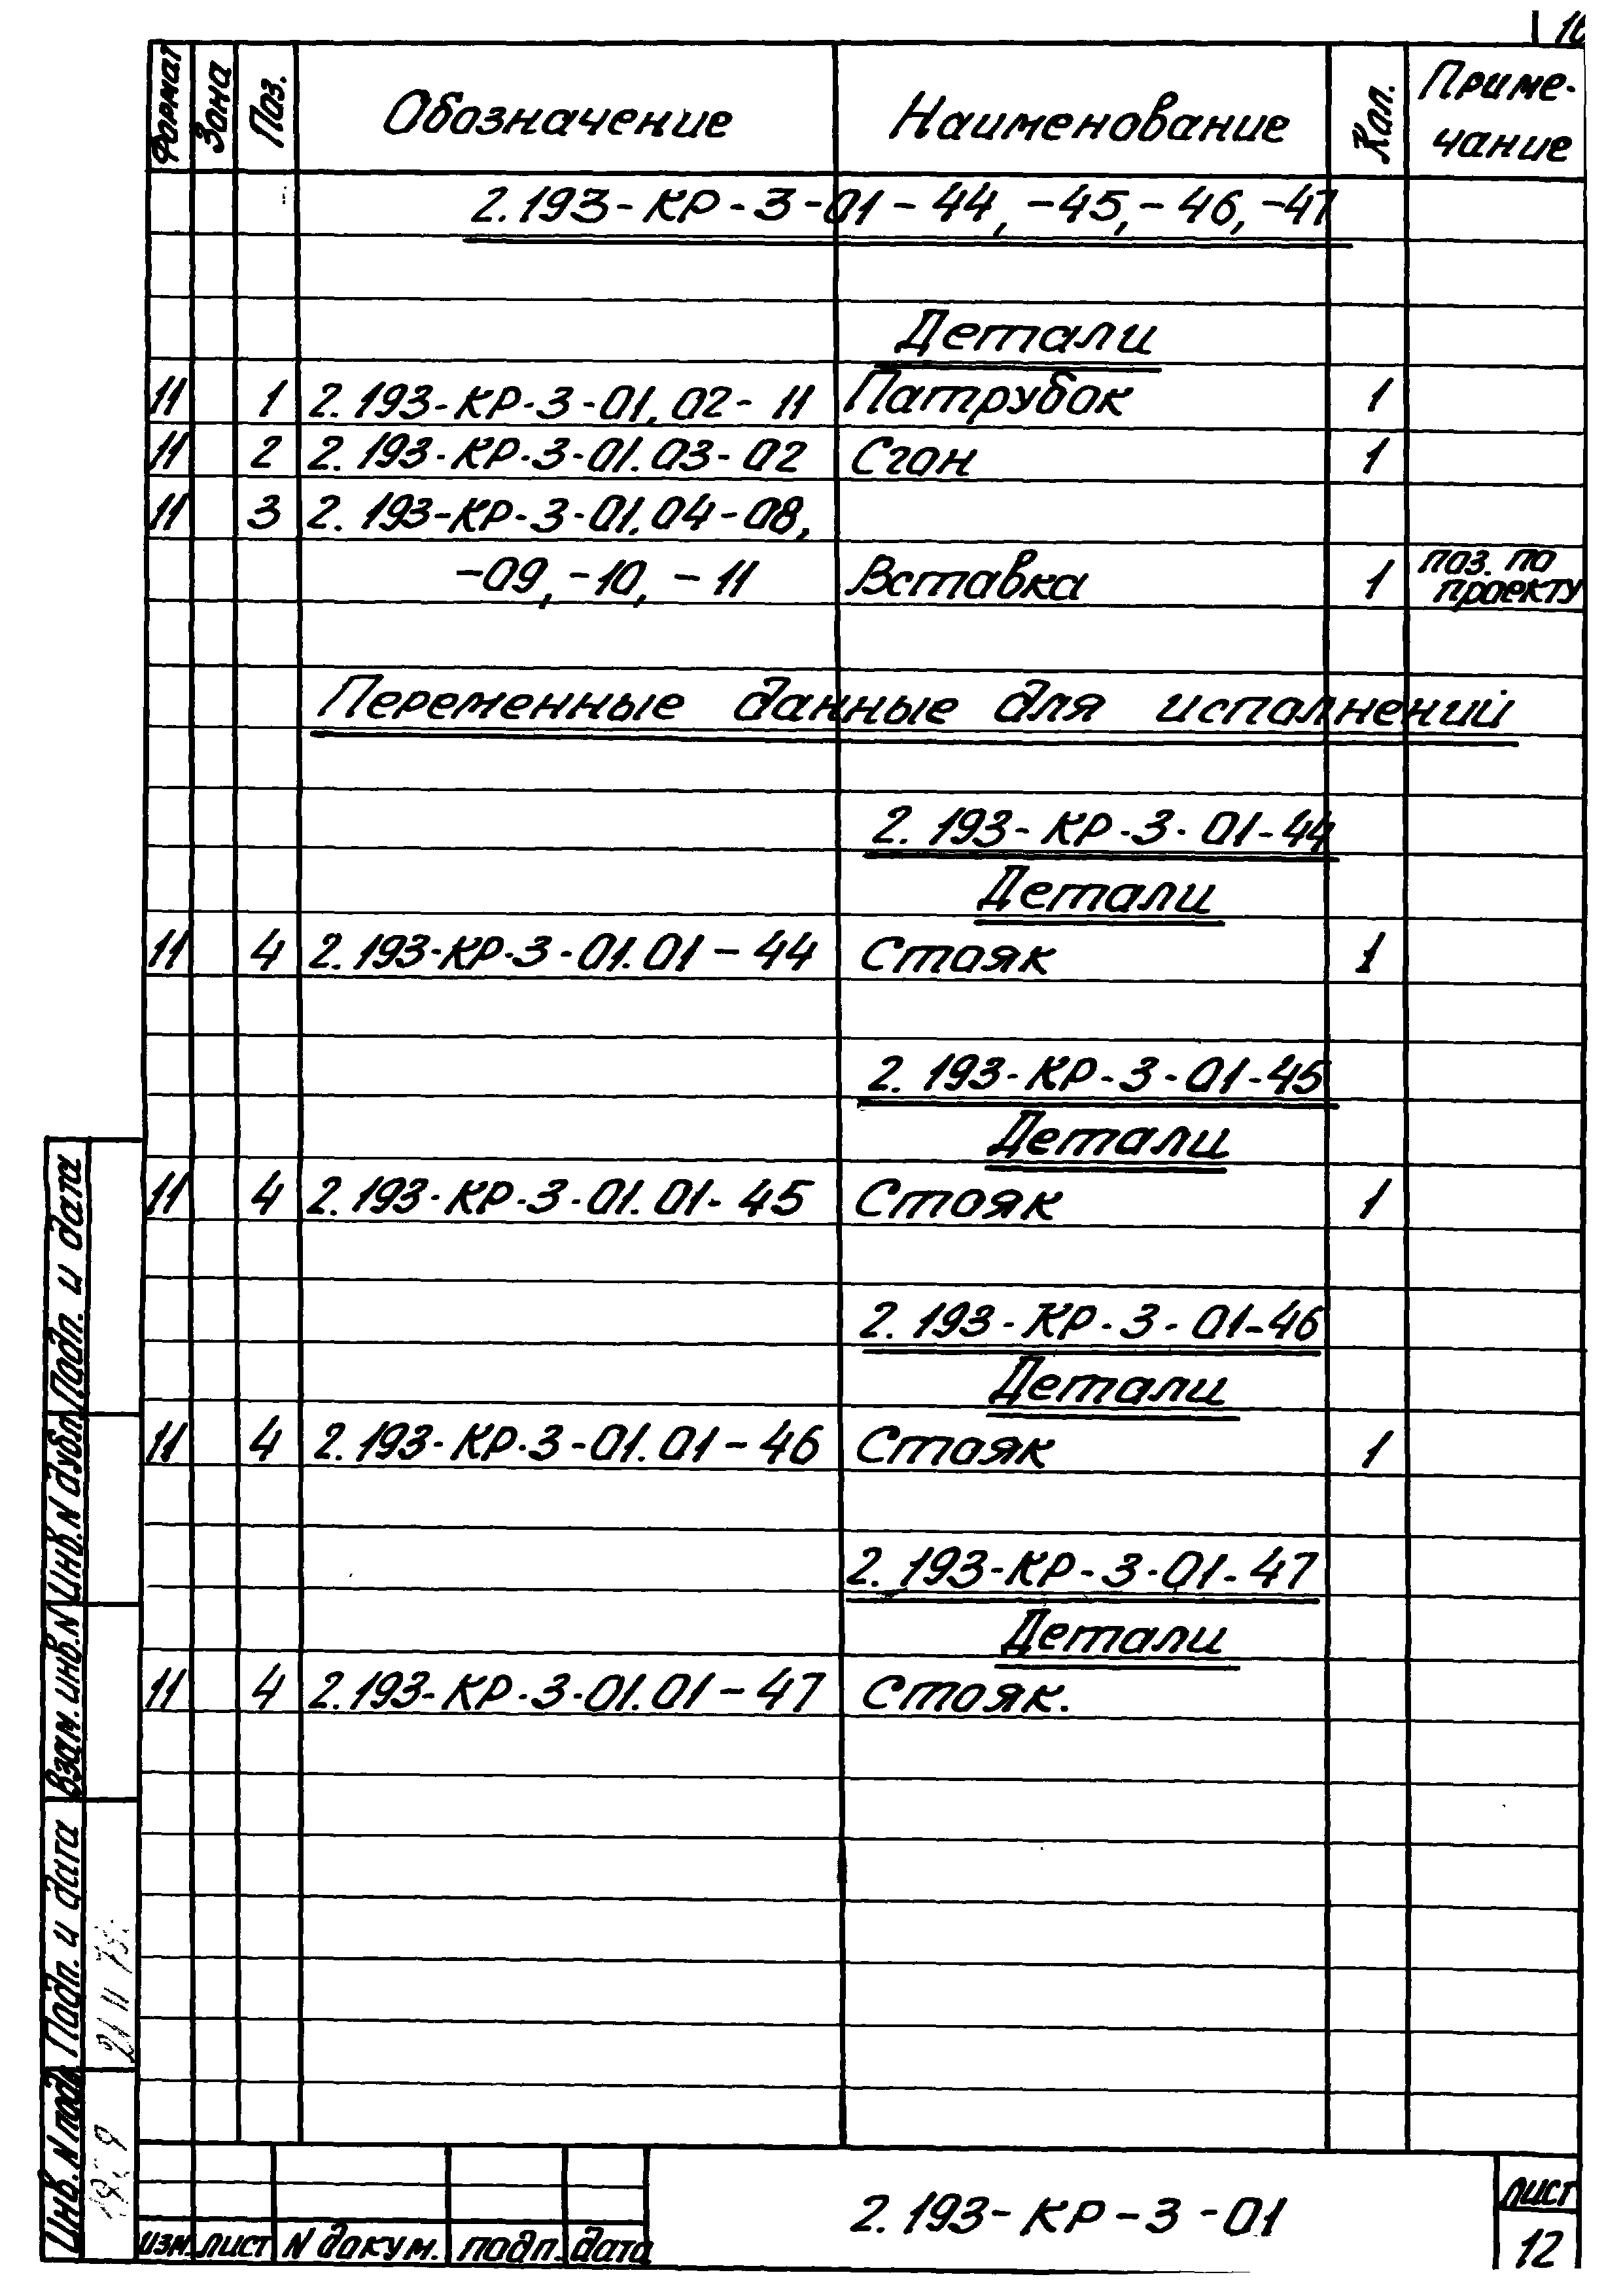 Формат Зона Поз. Обозначение Наименование Кол. Приме-
чание
2.193-КР-3-01-44, -45, -46, -47
Детали
11 1 2.193-КР-3-01.02-11 Патрубок 1
11 2 2.193-КР-3-01.03-02 Сгон 1
11 3 2.193-КР-3-01.04-08,
-09, -10, -11 Вставка 1 поз. по
проекту
Переменные данные для исполнений
2.193-КР-3-01-44
Детали
11 4 2.193-КР-3-01.01-44 Стояк 1
2.193-КР-3-01-45
Детали
11 4 2.193-КР-3-01.01-45 Стояк 1
2.193-КР-3-01-46
Детали
11 4 2.193-КР-3-01.01-46 Стояк 1
2.193-КР-3-01-47
Детали
11 4 2.193-КР-3-01.01-47 Стояк.
Подп. и дата
Инв. N дубл.
Взам. инв. N
Подп. и дата
21 11 75
Инв. N подл.
изм. лист N докум. подп. дата
2.193-КР-3-01
лист
12